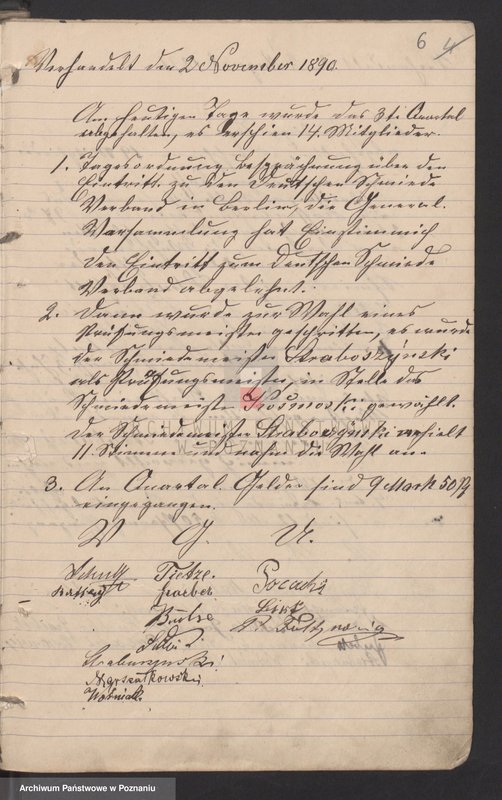 6 4
Verhandelt den 2 November 1890.
Am heutigen Tage wurde das 3te Quartal
abgehalten, es erschien 14. Mitglieder.
1. Tagesordnung Besprächung über den
Eintritt zu den Deutschen Schmiede
Verband in Berlin, die General.
Versammlung hat Einstimmich
den Eintritt zum Deutschen Schmiede
Verband abgelehnt.
2. Dann wurde zur Wahl eines
Prüfungsmeister geschritten, es wurde
der Schmiedemeister Straboszynski
als Prüfungsmeister, in Stelle des
Schmiedemeister gewählt.
Der Schmiedemeister erhielt
11 Stimmen und nahm die Wahl an.
3. An Quartal Gelder sind 9 Mark 50 Pf
eingegangen.
V. G. U.
Schulz Tietze.
Butze
Fr. Gutznarig
Straburzynski
Marszatkowski
Woźniak.
ARCHIWUM PAŃSTWOWE
W POZNANIU
Archiwum Państwowe w Poznaniu